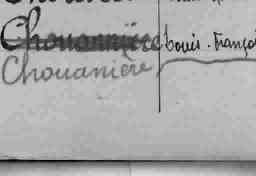 Chouannière Louis-Françoi
Chouanière